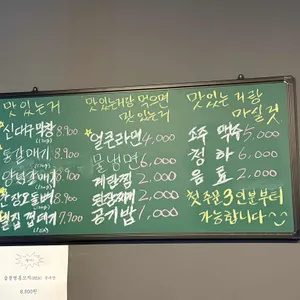 맛있는거
신대구막창 8,900
돌갈매기 8,900
양념갈매기 8,900
8,900
7,900
맛있는거랑 먹으면
맛있는거
얼큰라면 4,000
물냉면 6,000
계란찜 2,000
된장찌개 2,000
공기밥 1,000
맛있는거랑
마실것
소주 맥주 5,000
청하 6,000
음료 2,000
첫 주문 3인분부터
가능합니다
8,800원